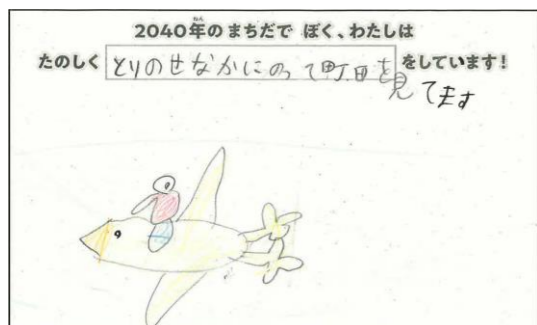 2040年のまちだで ぼく、わたしは
ねん
たのしく とりのせなかにのって町田を見てます をしています!